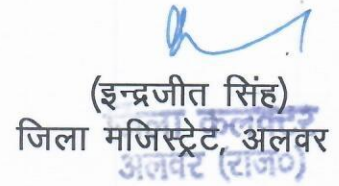 (इन्द्रजीत सिंह)
जिला मजिस्ट्रेट, अलवर
कलक्टर
अलवर (राज०)